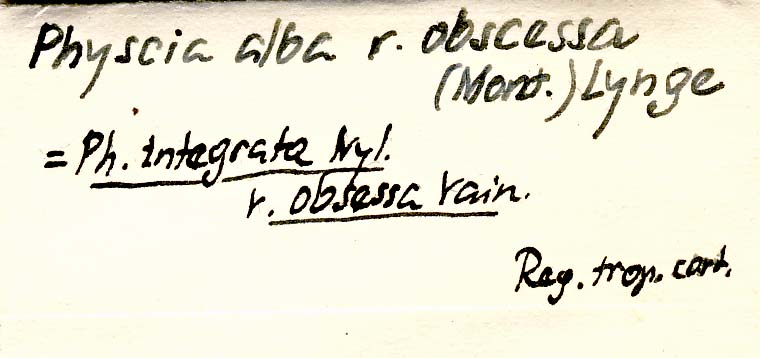 Physcia alba v. obscessa
(Mont.) Lynge
= Ph. integrata Nyl.
v. obsessa Vain.
Reg. trop. cort.